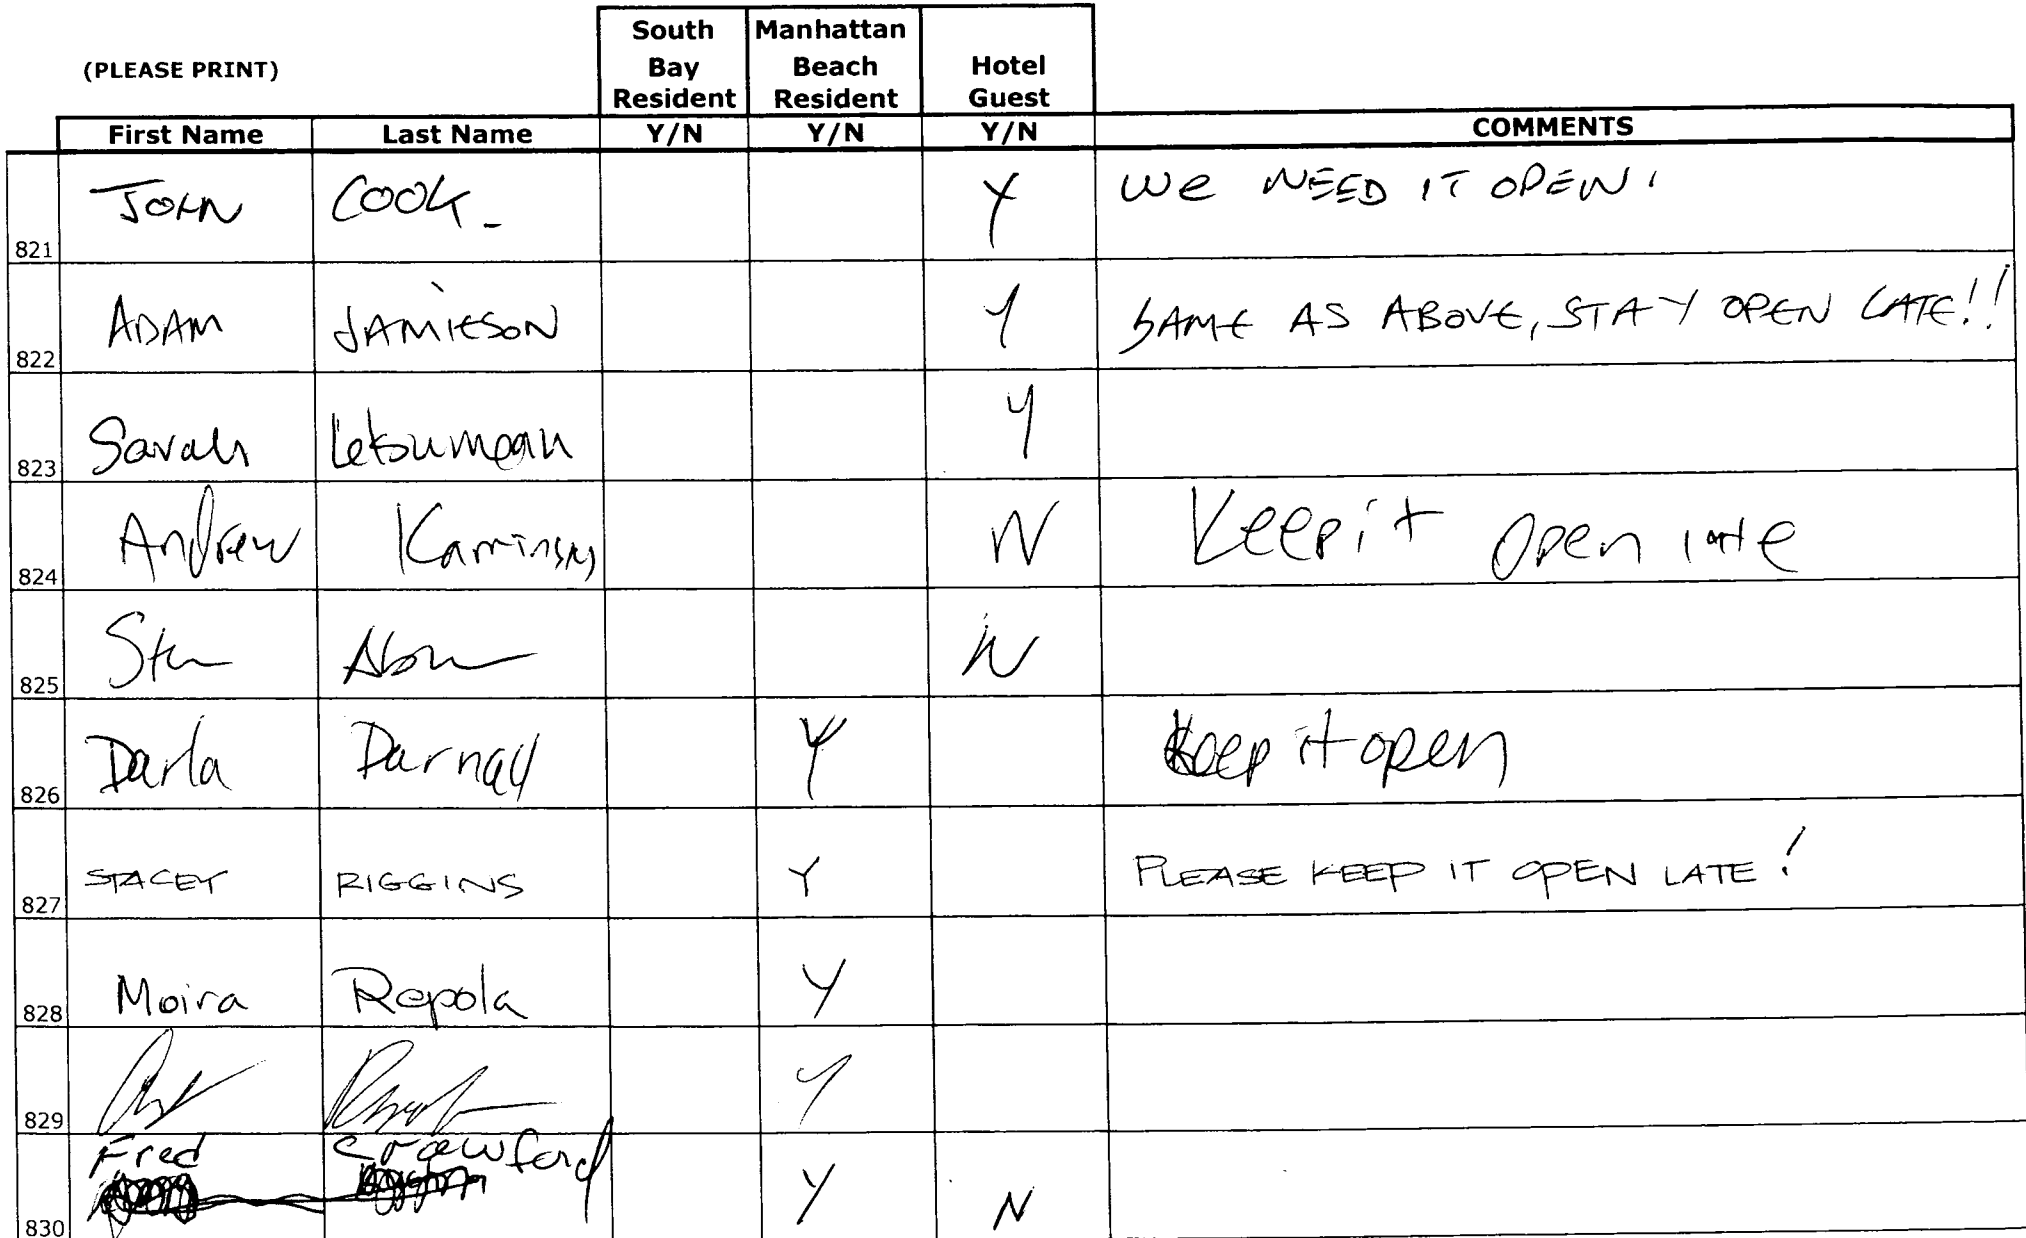 (PLEASE PRINT) South Bay Resident Manhattan Beach Resident Hotel Guest
First Name Last Name Y/N Y/N Y/N COMMENTS
821 JOHN COOK Y We NEED IT OPEN!
822 ADAM JAMIESON Y SAME AS ABOVE, STAY OPEN LATE!!
823 Sarah Letsumean Y
824 Andrew Kaminsky N Keep it open late
825 N
826 Darla Darnall Y Keep it open
827 STACEY RIGGINS Y PLEASE KEEP IT OPEN LATE!
828 Moira Repola Y
829 Y
830 Fred Crawford Y N